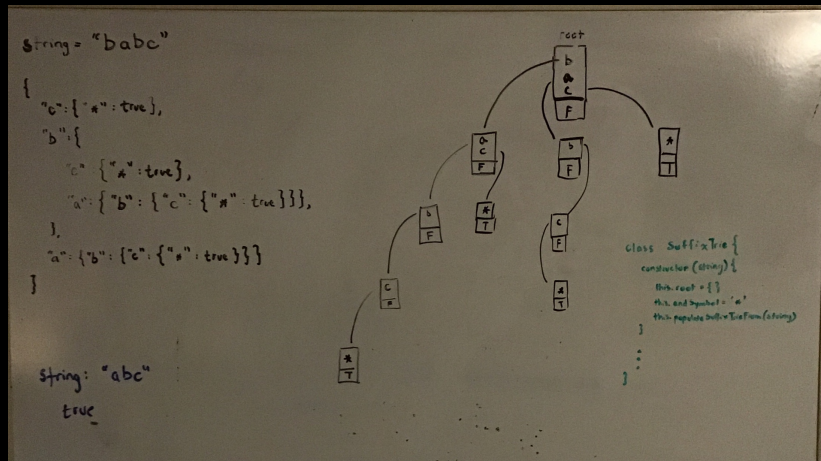 string = "babc"
{
"c": { "*" : true },
"b": {
"c" {"*" : true},
"a": { "b" : { "c" : { "*" : true }}},
},
"a": {"b": {"c": {"*" : true }}}
}
string: "abc"
true
root
b
a
c
F
a
c
F
b
F
*
T
b
F
*
T
c
F
c
*
T
*
T
class SuffixTrie {
constructor (string) {
this.root = { }
this.endSymbol = '*'
this.populateSuffixTrieFrom(string)
}
}